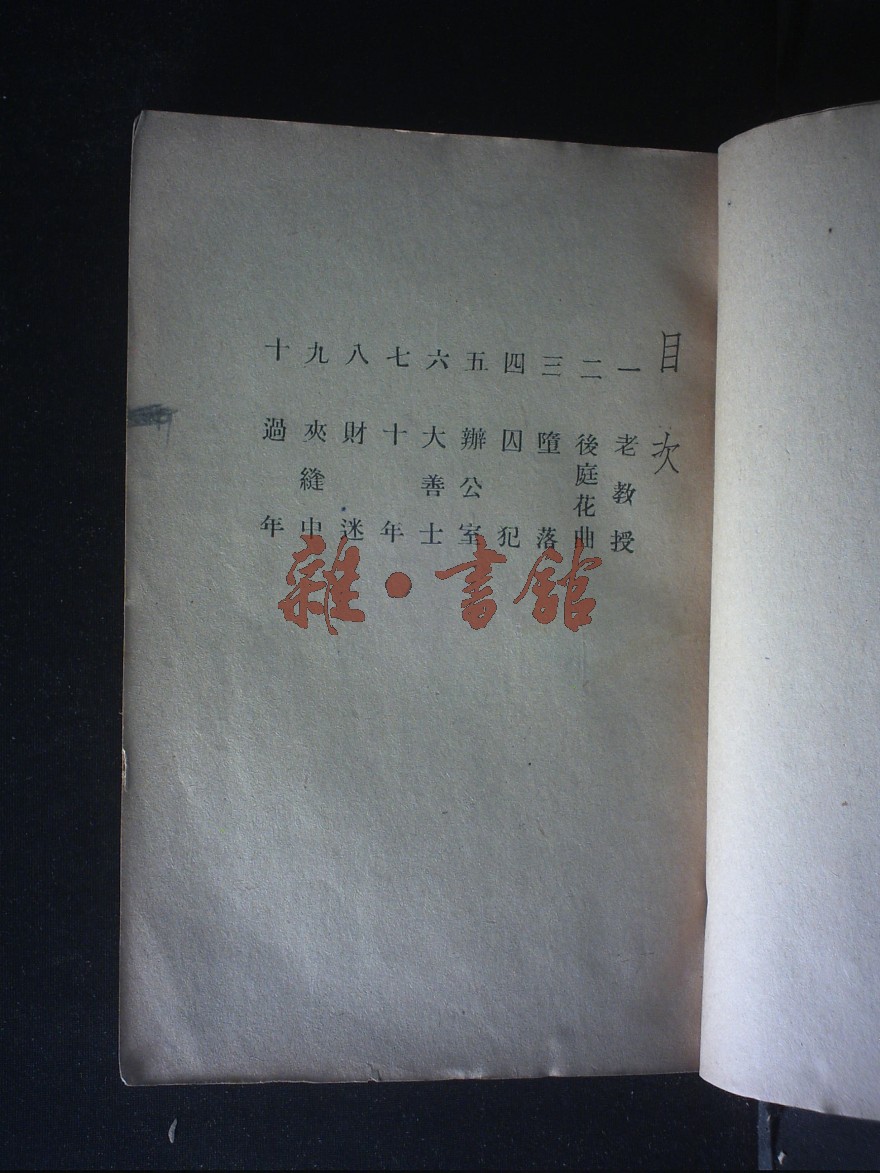 目次
一 老教授
二 後庭花曲
三 墮落
四 囚犯
五 辦公室
六 大善士
七 十年
八 財迷
九 夾縫中
十 過年
雜·書館